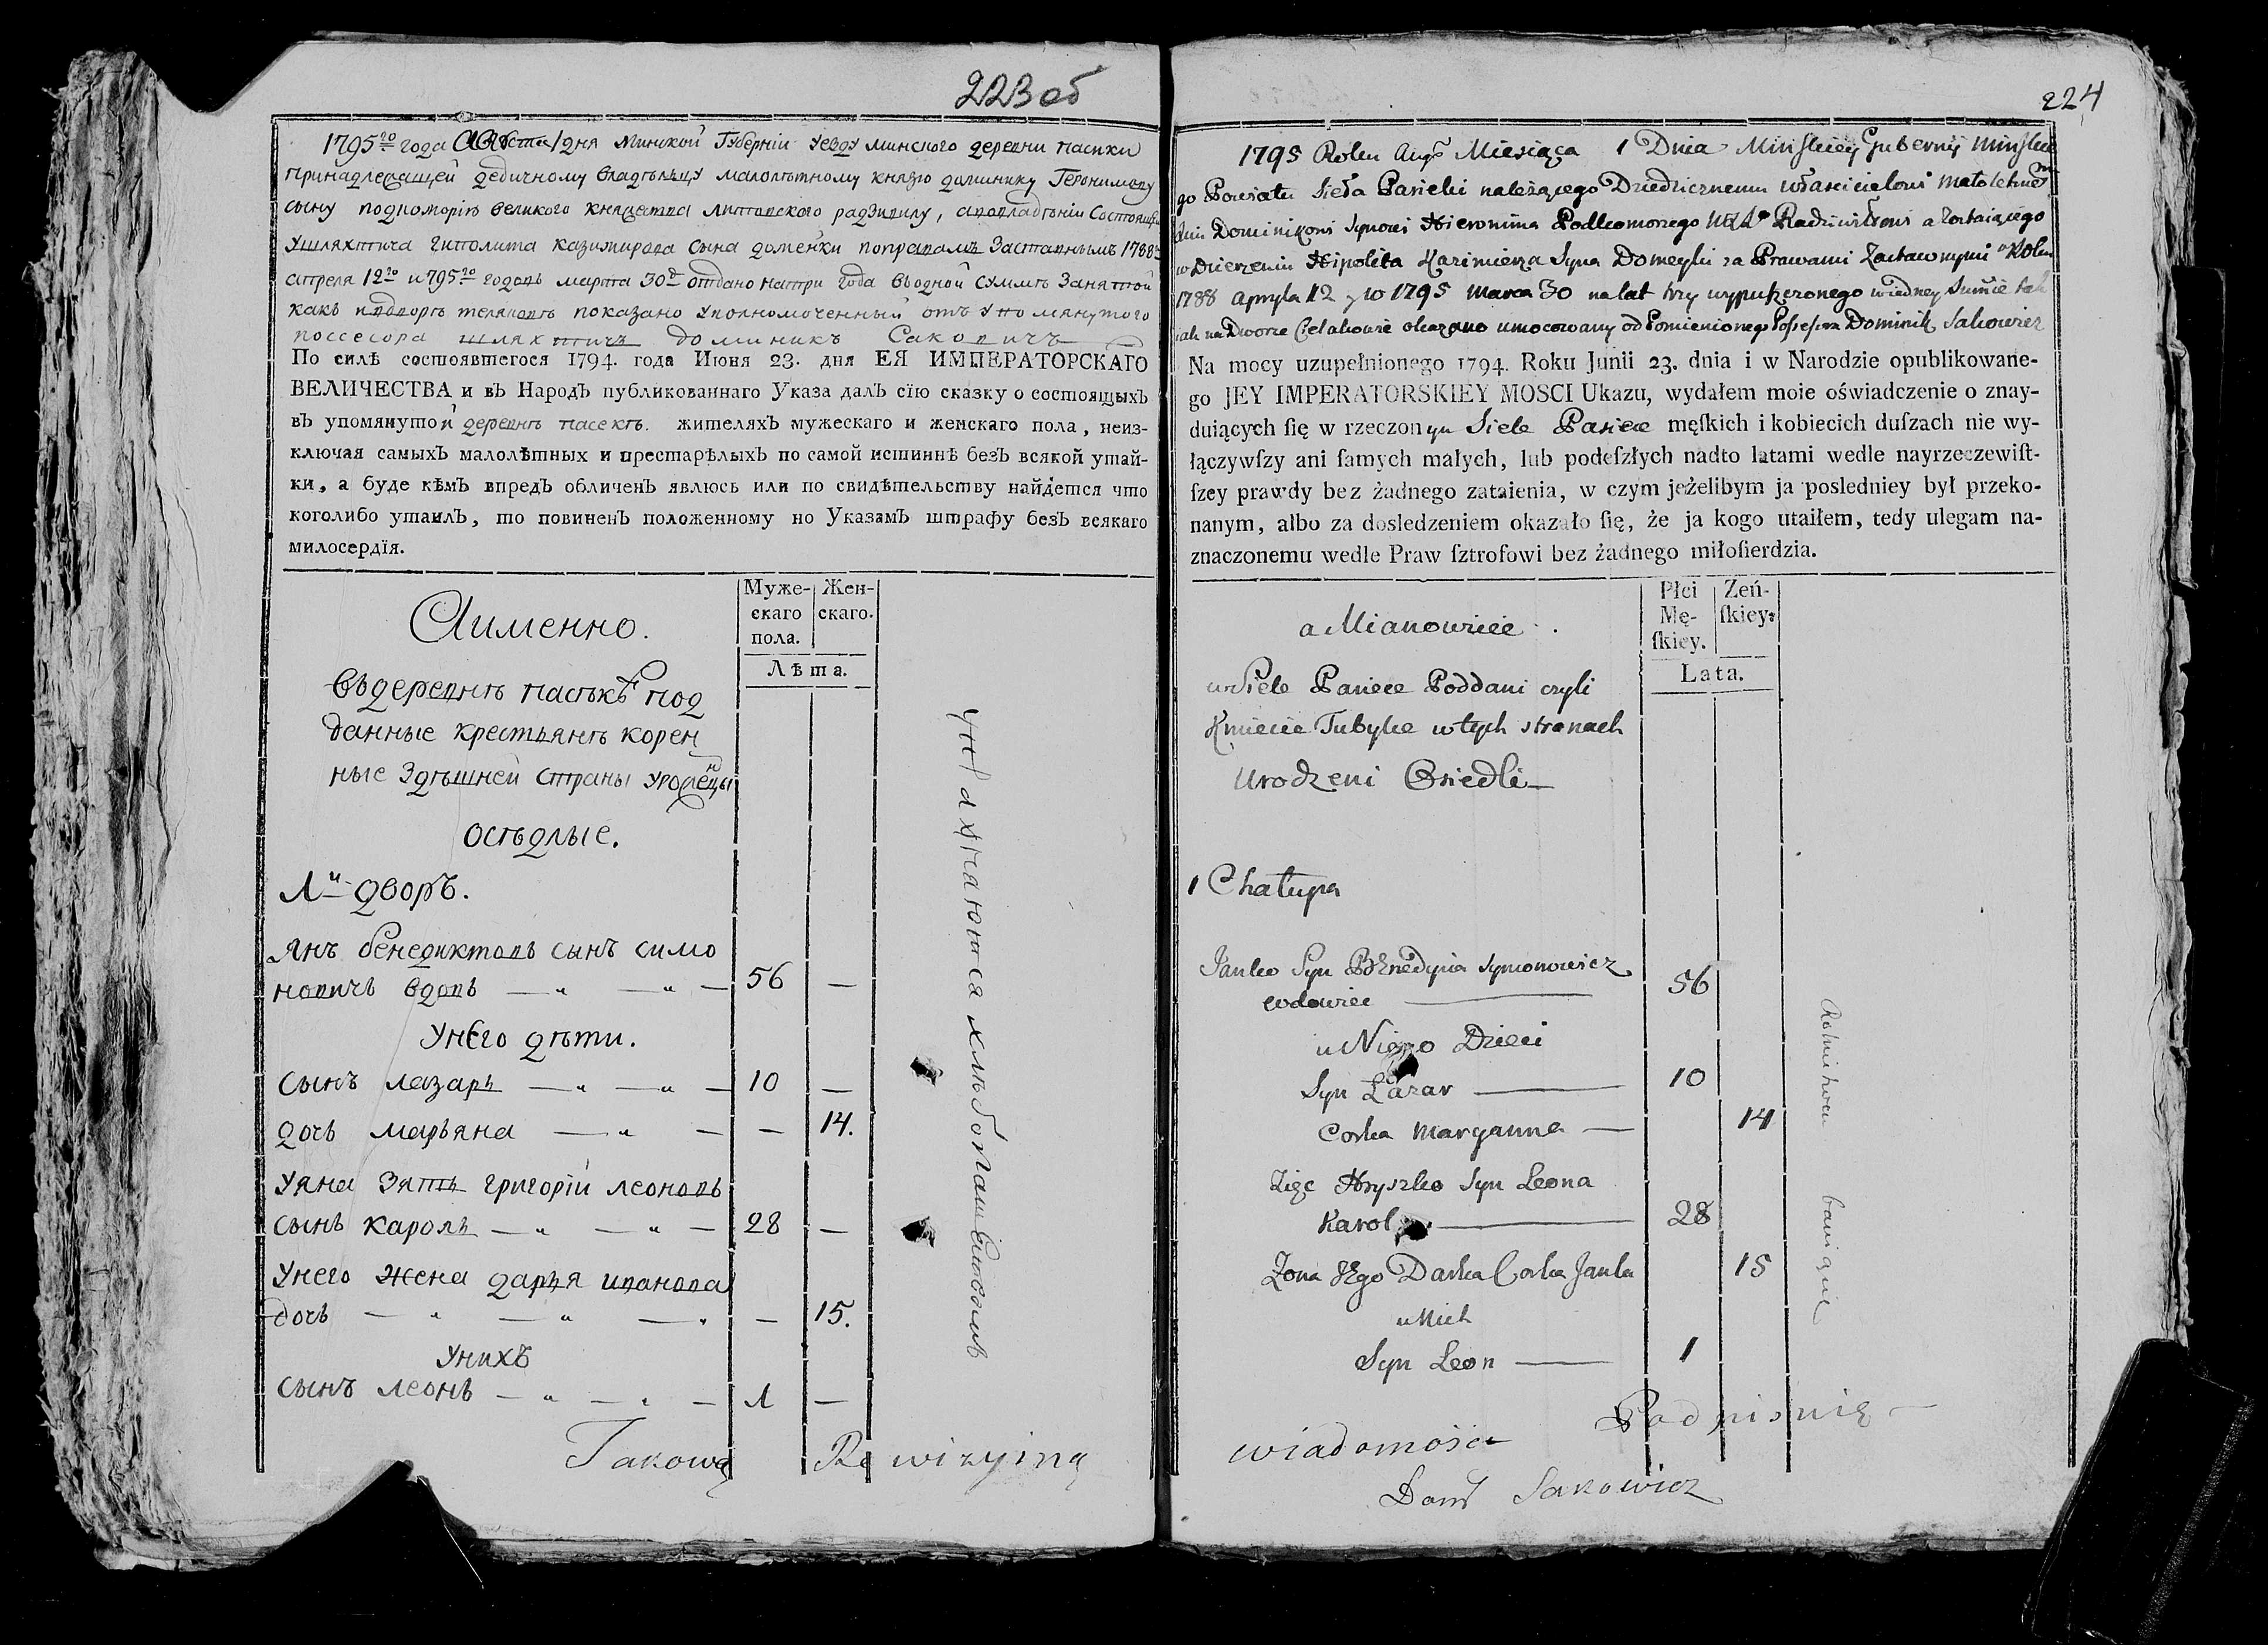 223 об
1795го года Августа 1 дня Минской Губернiи уезду минского деревни пасики
принадлежащей дедичному владѣльцу малолѣтному князю доминику Геронимову
сыну подкоморiя великого княжества литовского радзивилу, авовладѣнiи состоящей
ушляхтича гиполита казимирова сына домейки поправамъ заставнымъ 1788
апреля 12го и 795го годовъ марта 30 отдано натри года водной суммѣ занятой
какъ показано уполномоченный отъ упомянутого
поссесора шляхтичъ доминикъ Саковичъ
По силѣ состоявшегося 1794. года Июня 23. дня ЕЯ ИМПЕРАТОРСКАГО
ВЕЛИЧЕСТВА и въ Народъ публикованнаго Указа далъ сїю сказку о состоящыхъ
въ упомянутой деревнѣ пасекѣ. жителяхъ мужескаго и женскаго пола, неиз-
ключая самыхъ малолѣтных и престарѣлыхъ по самой истиннѣ безъ всякой утай-
ки, а буде кѣмъ впредъ обличенъ явлюсь или по свидѣтельству найдется что
коголибо утаилъ, то повиненъ положенному но Указамъ штрафу безъ всякаго
милосердїя.
Аименно.
Муже-
скаго
пола.
Жен-
скаго.
Лѣта.
вдеревнѣ пасѣкѣ под
данные крестьянѣ корен
ные здѣшней страны уроженцы
осѣдлые.
1й дворъ.
Янъ бенедиктовъ сынъ симо
новичъ вдовъ — " — " — 56 —
унего дѣти.
сынъ лазаръ — " — " — 10 —
дочъ марьяна — " — — 14.
уяна зять григорiй леоновъ
сынъ кароль — " — " — 28 —
унего жена даръя иванова
дочъ — " — " — " — 15.
унихъ
сынъ леонъ — " — " — 1 —
хлѣбопашествомъ
Takową Rewizyiną
224
1795 Roku Augs Miesiąca 1 Dnia Minskiey Gubernij Minskie
go Powiatu Sieła Pasieki należącego Dziedzicznemu własicielowi małoletnem
Dominikowi Synowi Hieronima Podkomorzego Radziwiłłowi a zostaiącego
w Dzierzeniu Hipolita Kazimierza Syna Domeyki za Prawami Zastawnymi Roku
1788 Apryla 12 y w 1795 Marca 30 na lat trzy wypuszczonego w iedney Sumie tak
iak na Dworze okazano umocowany od Pomienionego Possessora Dominik Sakowicz
Na mocy uzupełnionego 1794. Roku Junii 23. dnia i w Narodzie opublikowane-
go JEY IMPERATORSKIEY MOSCI Ukazu, wydałem moie oświadczenie o znay-
duiących ſię w rzeczonym Siele Pasiece męſkich i kobiecich duſzach nie wy-
łączywſzy ani ſamych małych, lub podeſzłych nadto latami wedle nayrzeczewiſt-
ſzey prawdy bez żadnego zataienia, w czym jeżelibym ja posledniey był przeko-
nanym, albo za dosledzeniem okazało ſię, że ja kogo utaiłem, tedy ulegam na-
znaczonemu wedle Praw ſztrofowi bez żadnego miłoſierdzia.
a Mianowicie .
Płci
Mę-
ſkiey.
Zeń-
ſkiey.
Lata.
w Siele Pasiece Poddani czyli
Kmiecie Tubylce w tych stronach
Urodzeni Osiedli —
1 Chałupa
Janko Syn Benedycta Symonowicz
wdowiec — 56
u Niego Dzieci
Syn Łazar — 10
Corka Maryanna — 14
Zięc Hryszko Syn Leona
Karol — 28
Zona Jego Darka Corka Janka 15
u Nich
Syn Leon — 1
Rolnictwem bawią się
wiadomość Podpisuię —
Domk Sakowicz